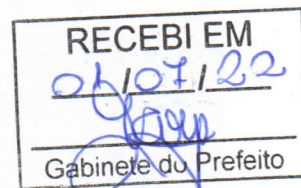 RECEBI EM
01/07/22
Gabinete do Prefeito